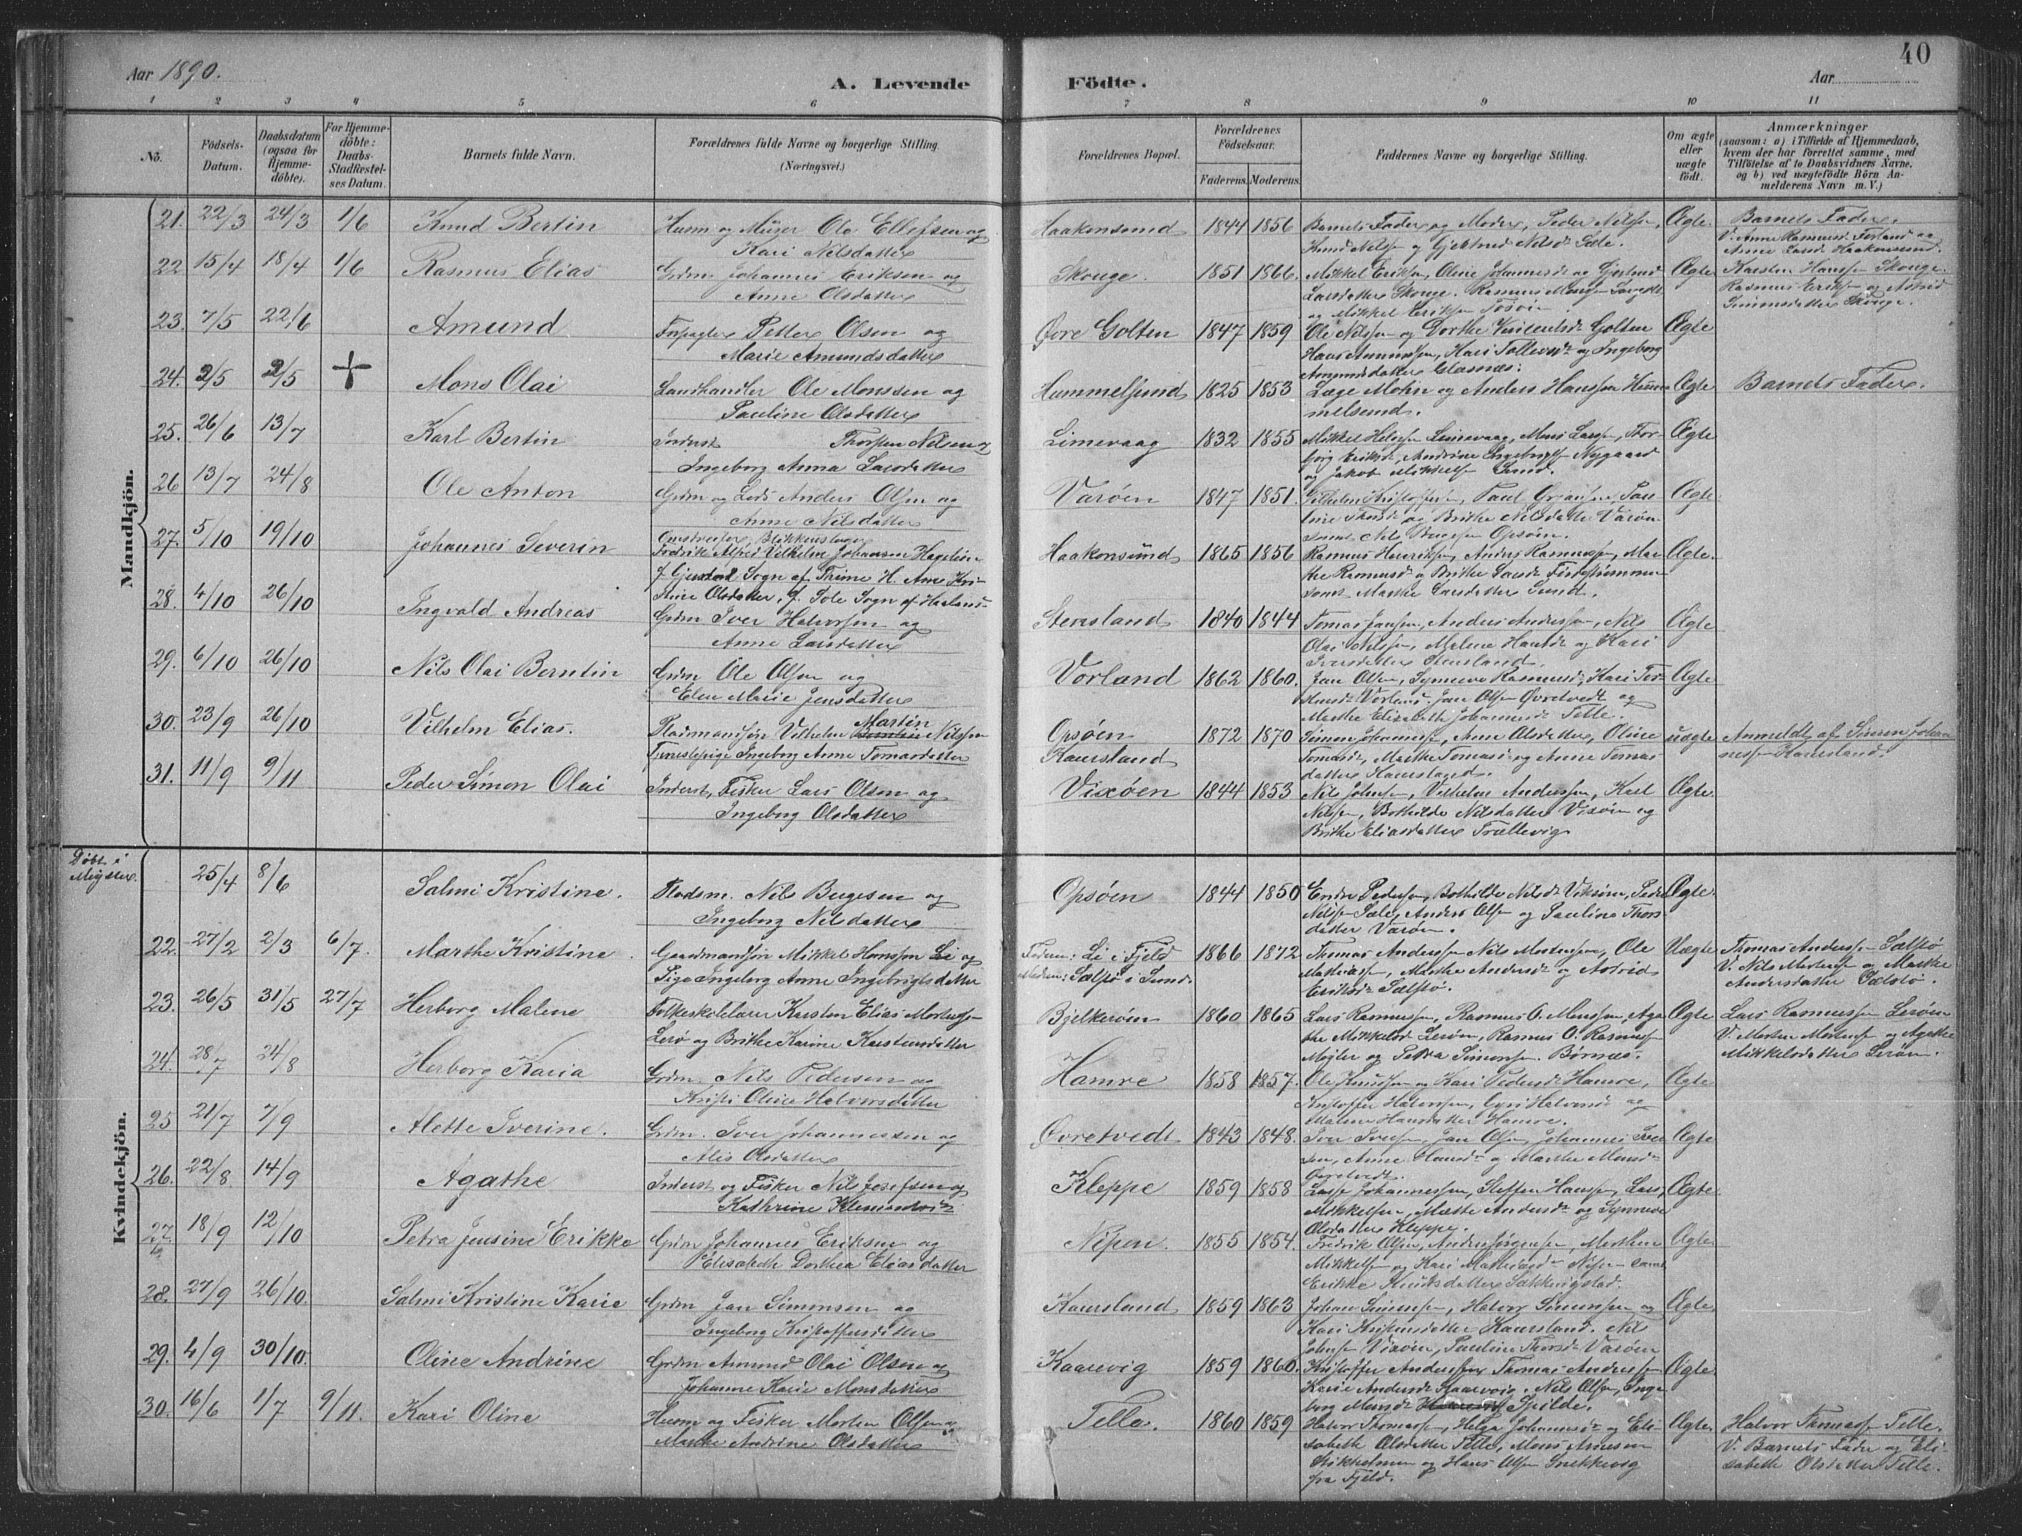 Aar 1890.
A. Levende Födte.
Aar
40
1 2 3 4 5 6 7 8 9 10 11
No.
Födsels-Datum.
Daabsdatum (ogsaa for Hjemme-döbte).
For Hjemme-döbte: Daabs-Stadfæstel-ses Datum.
Barnets fulde Navn.
Forældrenes fulde Navne og borgerlige Stilling. (Næringsvei.)
Forældrenes Bopæl.
Forældrenes Födselsaar.
Faderens. Moderens.
Faddernes Navne og borgerlige Stilling.
Om ægte eller uægte födt.
Anmærkninger (saasom: a) i Tilfælde af Hjemmedaab, hvem der har forrettet samme, med Tilföielse af to Daabsvidners Navne, og b) ved uægtefödte Börn An-melderens Navn m. V.)
Mandkjön.
21. 22/3 24/3 1/6 Knud Bertin Husm og Murer Ole Ellefsen og
Kari Nilsdatter
Haakonsund 1844 1856 Barnets Fader og Moder, Peder Nilsen,
Knud Nilsen og Gjertrud Nilsd Telle.
Ægte. Barnets Fader.
V. Anne Rasmusd Forland og
Anne Larsd Haakonsund.
22 15/4 18/4 1/6 Rasmus Elias Grdm. Johannes Eriksen og
Anne Olsdatter
Skouge. 1851 1866. Mikkel Eriksen, Oline Johannesd og Gjertrud
Larsdatter Skouge. Rasmus Monsen
og Mikkel Eriksen
Ægte Karsten Hanssen Skouge.
Rasmus Eriksen og Astrid
Simonsdatter Skouge.
23. 7/5 22/6 Amund Forpagter Petter Olsen og
Marie Amundsdatter
Øvre Golten 1847 1859 Ole Nilssen og Dorthe Golten
Hans Amundsen, Kari Tollevsd og Ingeborg
Amundsdatter Glasnes.
Ægte
24. 2/5 2/5 + Mons Olai Landhandler Ole Monssen og
Pauline Olsdatter
Hummelsund 1825 1853 Lage Mohn og Anders Hanssen Hum-
melsund.
Ægte Barnets Fader.
25. 26/6 13/7 Karl Bertin Inderst Thorsten Nilsen og
Ingeborg Anna Larsdatter
Limevaag 1832 1855 Mikkel Helgesen Limevaag, Mons Larsen, Thor-
bjørg Eriksd, Andrine Ingebrigtsd Nygaard
og Jakob Mikkelsen Sund.
Ægte
26 13/7 24/8 Ole Anton Grdm og Lods Anders Olsen og
Anne Nilsdatter
Varöen 1847 1851. Vilhelm Kristoffersen, Paul Pau-
line Thorsd og Brithe Nilsdatter Varöen
samt Nils Opsöen.
Ægte
27. 5/10 19/10 Johannes Severin Omstreifer, Blikkenslager
Fredrik Alfred Vilhelm Johansen Hagelin
f Gjerstad Sogn af H. Ane Kri-
stine Olsdatter, f. Sole Sogn af
Haakonsund 1865 1856 Rasmus Henriksen, Anders Rasmussen, Mar-
the Rasmusd og Brithe Larsd
samt Marthe Larsdatter Sund.
Ægte.
28. 4/10 26/10 Ingvald Andreas Grdm Iver Halvorsen og
Anne Larsdatter
Stensland 1840 1844 Tomas Jansen, Anders Andersen, Nils
Olai Nilsen, Malene Hansd og Kari
Iversdatter Stensland.
Ægte
29. 6/10 26/10 Nils Olai Berntin Grdm Ole Olsen og
Elen Marie Jensdatter
Vorland 1862 1860. Jan Olsen, Synneve Rasmusd, Kari
Vorland. Jan Olsen Øvretvedt og
Marthe Elisabeth Johannesd Telle.
Ægte
30. 23/9 26/10 Vilhelm Elias. Pladsmandssøn Vilhelm Martin Nilssen
Tjenestepige Ingeborg Anne Tomasdatter
Opsöen
Kausland
1872 1870 Simon Johannessen, Ane Olsdatter, Oline
Tomasd, Marthe Tomasd og Anne Tomas-
datter Kausland.
uægte Anmeldt af Simon Johan-
nessen Kausland.
31. 11/9 9/11 Peder Simon Olai Inderst, Fisker Lars Olsen og
Ingeborg Olsdatter
Vixöen 1844 1853 Nils Johnsen, Vilhelm Anderssen, Karl
Nilsen, Bothilde Nilsdatter Vixöen og
Brithe Eliasdatter Trællevig
Ægte
Döbt i
Møgster.
Kvindekjön.
25/4 8/6 Salmi Kristine. Pladsm. Nils Børgesen og
Ingeborg Nilsdatter
Opsöen 1844 1850 Endre Pedersen, Bothilde Nilsd Vixöen, Peder
Nilsen Sæle, Anders Olsen og Pauline Thors-
datter Varöen.
Ægte.
22. 27/2 2/3 6/7. Marthe Kristine Gaardmandssøn Mikkel Hanssen Li og
Pige Ingeborg Anne Ingebrigtsdatter
Faderen: Li i Fjeld
Moderen: Sælsø i Sund.
1866 1872 Thomas Anderssen, Nils Mortensen, Ole
Mathiassen, Marthe Andersd og Astrid
Eriksd Sælsø.
Uægte Thomas Anderssen Sælsø
V. Nils Mortensen og Marthe
Andersdatter Sælsø.
23. 26/5 31/5 27/7 Herborg Malene Folkeskolelærer Karsten Elias Mortens-
Lerø og Brithe Karine Karstensdatter
Bjelkeröen 1860 1865 Lars Rasmussen, Rasmus O. Monssen, Aga-
the Mikkelsd Leröen, Rasmus O. Rasmussen
og Petra Simonsen. Børnes.
Ægte Lars Rasmussen Leröen
V. Morten Mortensen og Agathe
Mikkelsdatter Leröen.
24. 28/7 24/8 Herborg Karia Grdm. Nils Pedersen og
Kristi Oline Halvorsdatter
Hamre 1858 1857. Ole Knudsen og Kari Pedersd Hamre,
Kristoffer Halvorsen, Guri Halvorsd og
Malene Hansdatter Hamre.
Ægte
25 21/7 7/9 Alette Iverine. Grdm. Iver Johannessen og
Alis Olsdatter
Øvretvedt 1843 1848. Iver Iversen, Jan Olsen, Johannes Iver-
sen, Anne Hansd og Marthe Monsd
Øvretvedt.
Ægte
26. 22/8 14/9 Agathe Inderst og Fisker Nils Josefsen og
Kathrine Klemetsd
Kleppe 1859 1858 Lasse Johannessen, Steffen Hansen, Lars
Mikkelsen, Marthe Andersd og Synneve
Olsdatter Kleppe.
Ægte
27. 18/9 12/10 Petra Jensine Erikke Grdm Johannes Eriksen og
Elisabeth Dorthea Eliasdatter
Nipen. 1855 1854. Fredrik Olsen, Anders Jørgensen, Morthen
Mikkelsen og Kari Mathiasd Nipen samt
Erikke Knutsdatter Søkkingstad.
Ægte
28. 27/9 26/10. Salmi Kristine Karie Grdm Jan Simonsen og
Ingeborg Kristoffersdatter
Kausland 1859 1863 Johan Simonsen, Halvor Simonsen og
Kari Kristensdatter Kausland. Nils
Johnsen Vixöen, Pauline Thorsd Varöen
Ægte
29. 4/9 30/10. Oline Andrine Grdm Amund Olai Olsen og
Johanne Karie Monsdatter
Kaarevig 1859 1860. Kristoffer Anderssen, Thomas Anderssen
Karie Andersd Kaarevig. Nils Olsen, Inge-
borg Monsd Spilde.
Ægte
30. 16/6 1/7 9/11. Kari Oline Husm og Fisker Morten Olsen og
Marthe Andrine Olsdatter
Telle. 1860 1859 Halvor Thomassen, Helga Johannesd og Eli-
sabeth Olsdatter Telle, Mons Arnesen
Stikholmen og Hans Olsen Snekkevig
fra Fjeld.
Ægte. Halvor Thomassen Telle.
V. Barnets Fader og Eli-
sabeth Olsdatter Telle.